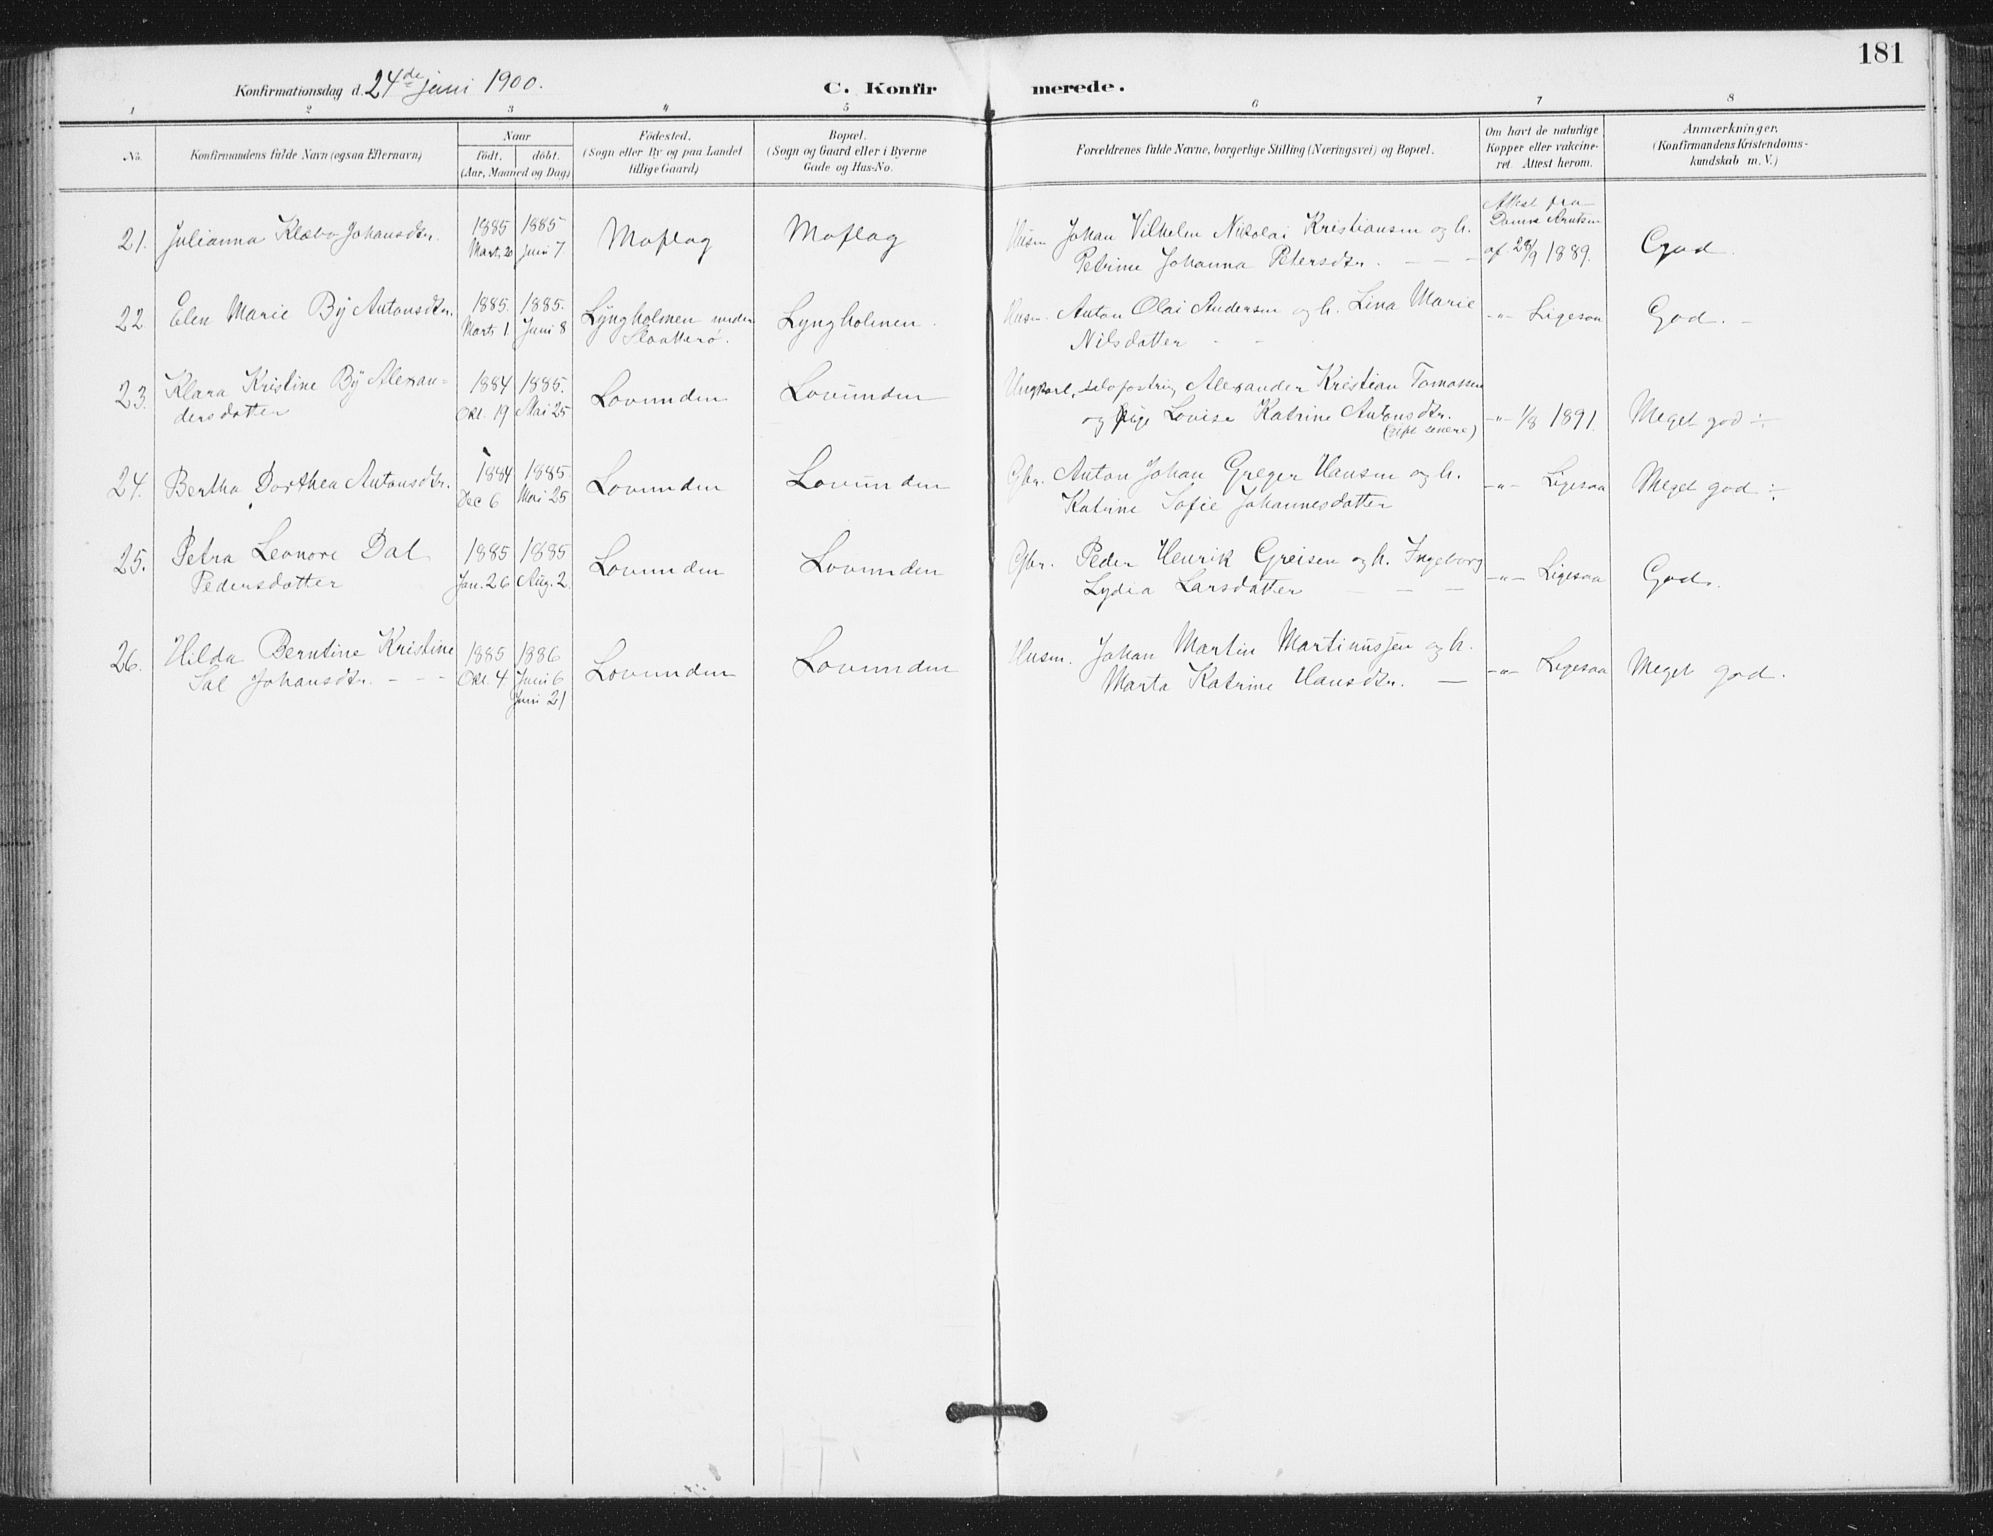 181
Konfirmationsdag d. 24de juni 1900.
C. Konfirmerede.
1 2 3 4 5 6 7 8
No.
Konfirmandens fulde Navn (ogsaa Efternavn)
Naar
födt. döbt.
(Aar, Maaned og Dag)
Födested.
(Sogn eller By og paa Landet
tillige Gaard)
Bopæl.
(Sogn og Gaard eller i Byerne
Gade og Hus-No.
Forældrenes fulde Navne, borgerlige Stilling (Næringsvei) og Bopæl.
Om havt de naturlige
Kopper eller vakcine-
ret. Attest herom.
Anmærkninger.
(Konfirmandens Kristendoms-
kundskab m. V.)
21. Julianna Klæbo Johansdtr.
1885 Marts 20
1885 Juni 7
Moflag
Moflag
Husm. Johan Vilhelm Nikolai Kristiansen og h.
Petrine Johanna Petersdtr. - - -
Attest fra
af 29/9 1889.
God.
22 Elen Marie By Antonsdtr.
1885. Marts 1
1885. Juni 8
Lyngholmen under
Slaatterø.
Lyngholmen.
Husm. Anton Olai Andersen og h. Lina Marie
Nilsdatter - -
-"- Ligesaa
God. -
23. Klara Kristine By Alexan-
dersdatter
1884 Okt. 19
1885. Mai 25
Lovunden
Lovunden
Ungkarl, Alexander Kristian Tomassen
og Pige Lovise Katrine Antonsdtr.
(gift senere)
-"- 1/8 1891.
Meget god ÷
24. Bertha Dorthea Antonsdtr.
1884 Dec 6
1885 Mai 25
Lovunden
Lovunden
Gbr. Anton Johan Greger Hansen og h.
Katrine Sofie Johannesdatter
-"- Ligesaa
Meget god ÷
25. Petra Leonore Dal
Pedersdatter
1885 Jan. 26
1885 Aug. 2
Lovunden
Lovunden
Gbr. Peder Henrik Greisen og h. Ingeborg
Lydia Larsdatter - - -
-"- Ligesaa
God.
26. Hilda Berntine Kristine
Sal Johansdtr. - - -
1885 Okt. 4
1886 Juni 6
Juni 21
Lovunden
Lovunden
Husm. Johan Martin Martinussen og h.
Marta Katrine Hansdtr. -
-"- Ligesaa
Meget god.